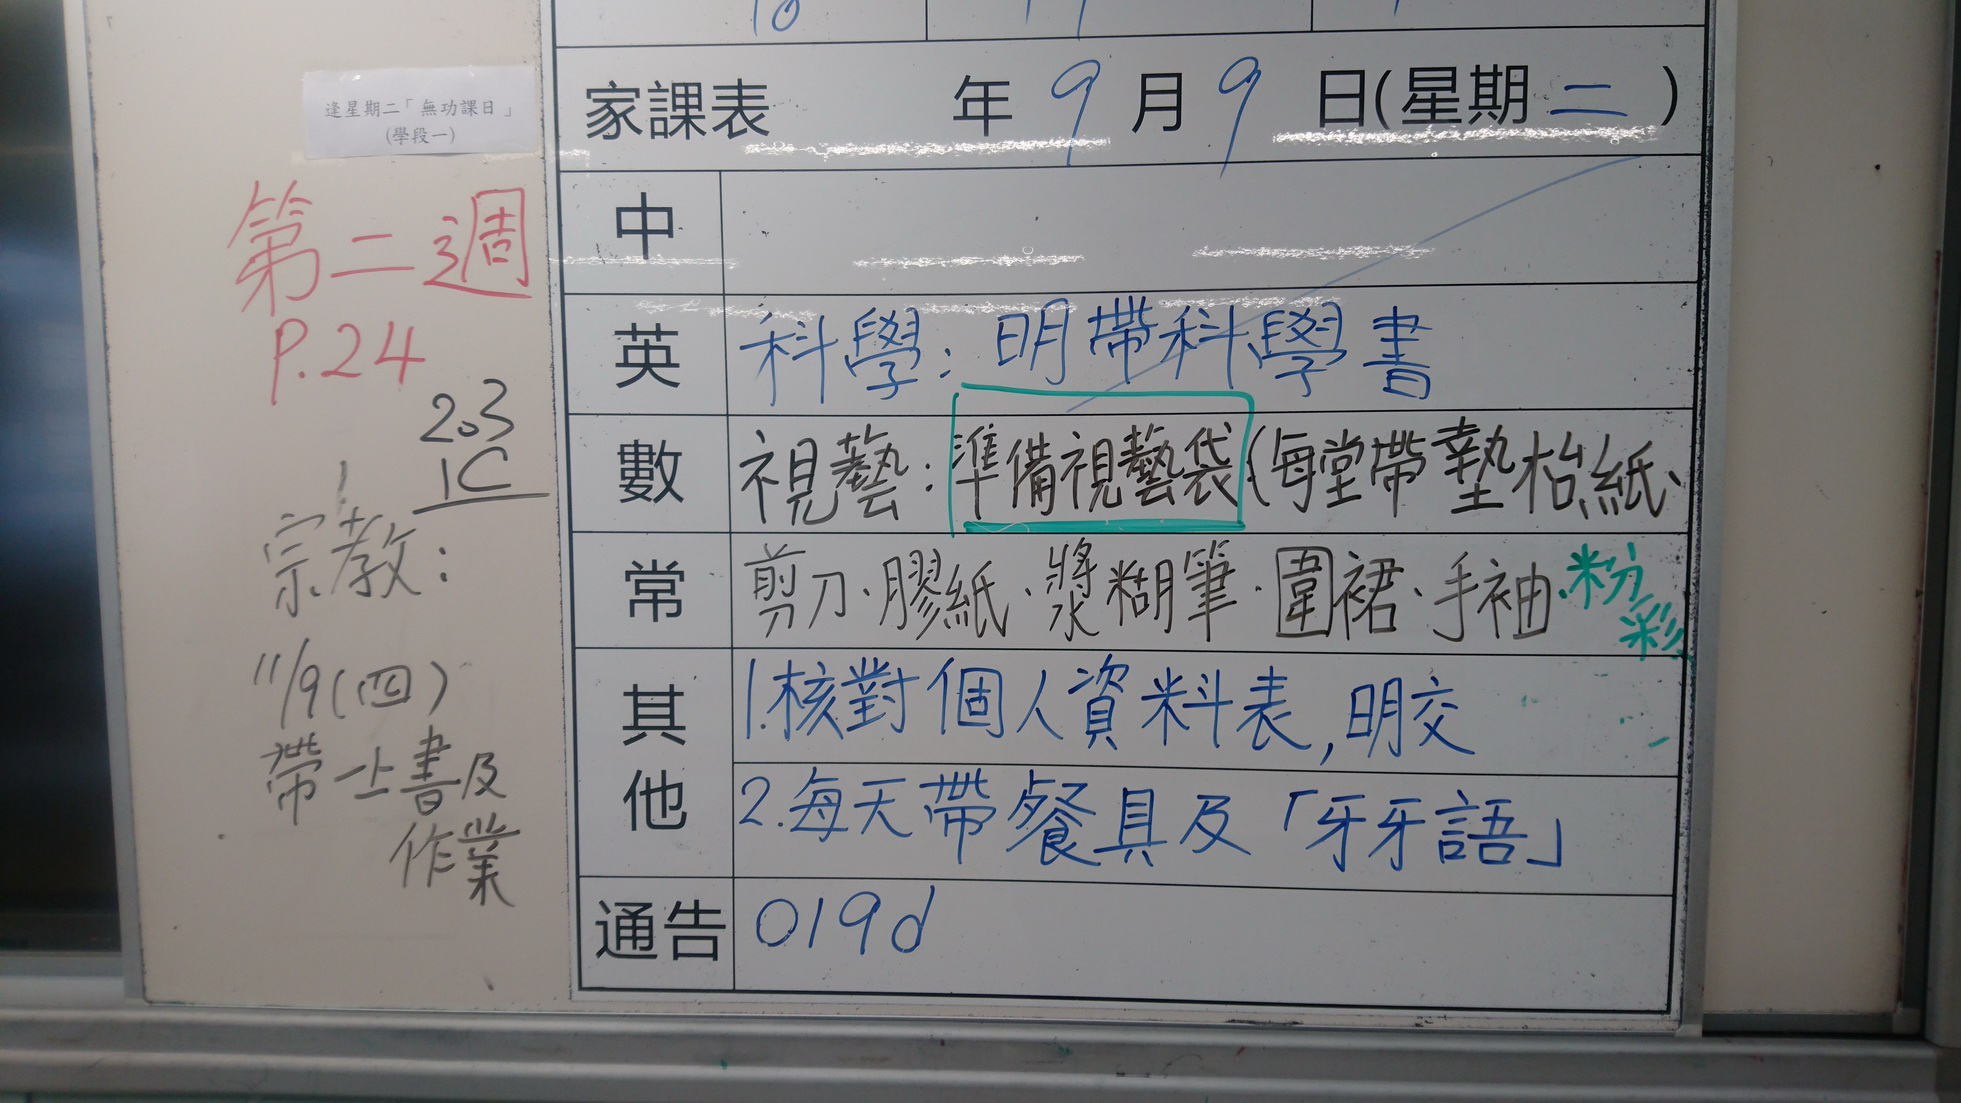 逢星期二「無功課日」
(學段一)
第二週
P.24
203
1C
宗教：
11/9(四)
帶一上書及
作業
家課表 年 9 月 9 日(星期 二 )
中
英 科學：明帶科學書
數 視藝：準備視藝袋(每堂帶墊枱紙、
常 剪刀·膠紙·漿糊筆·圍裙·手袖·粉彩
其他
1.核對個人資料表,明交
2.每天帶餐具及「牙牙語」
通告 019d